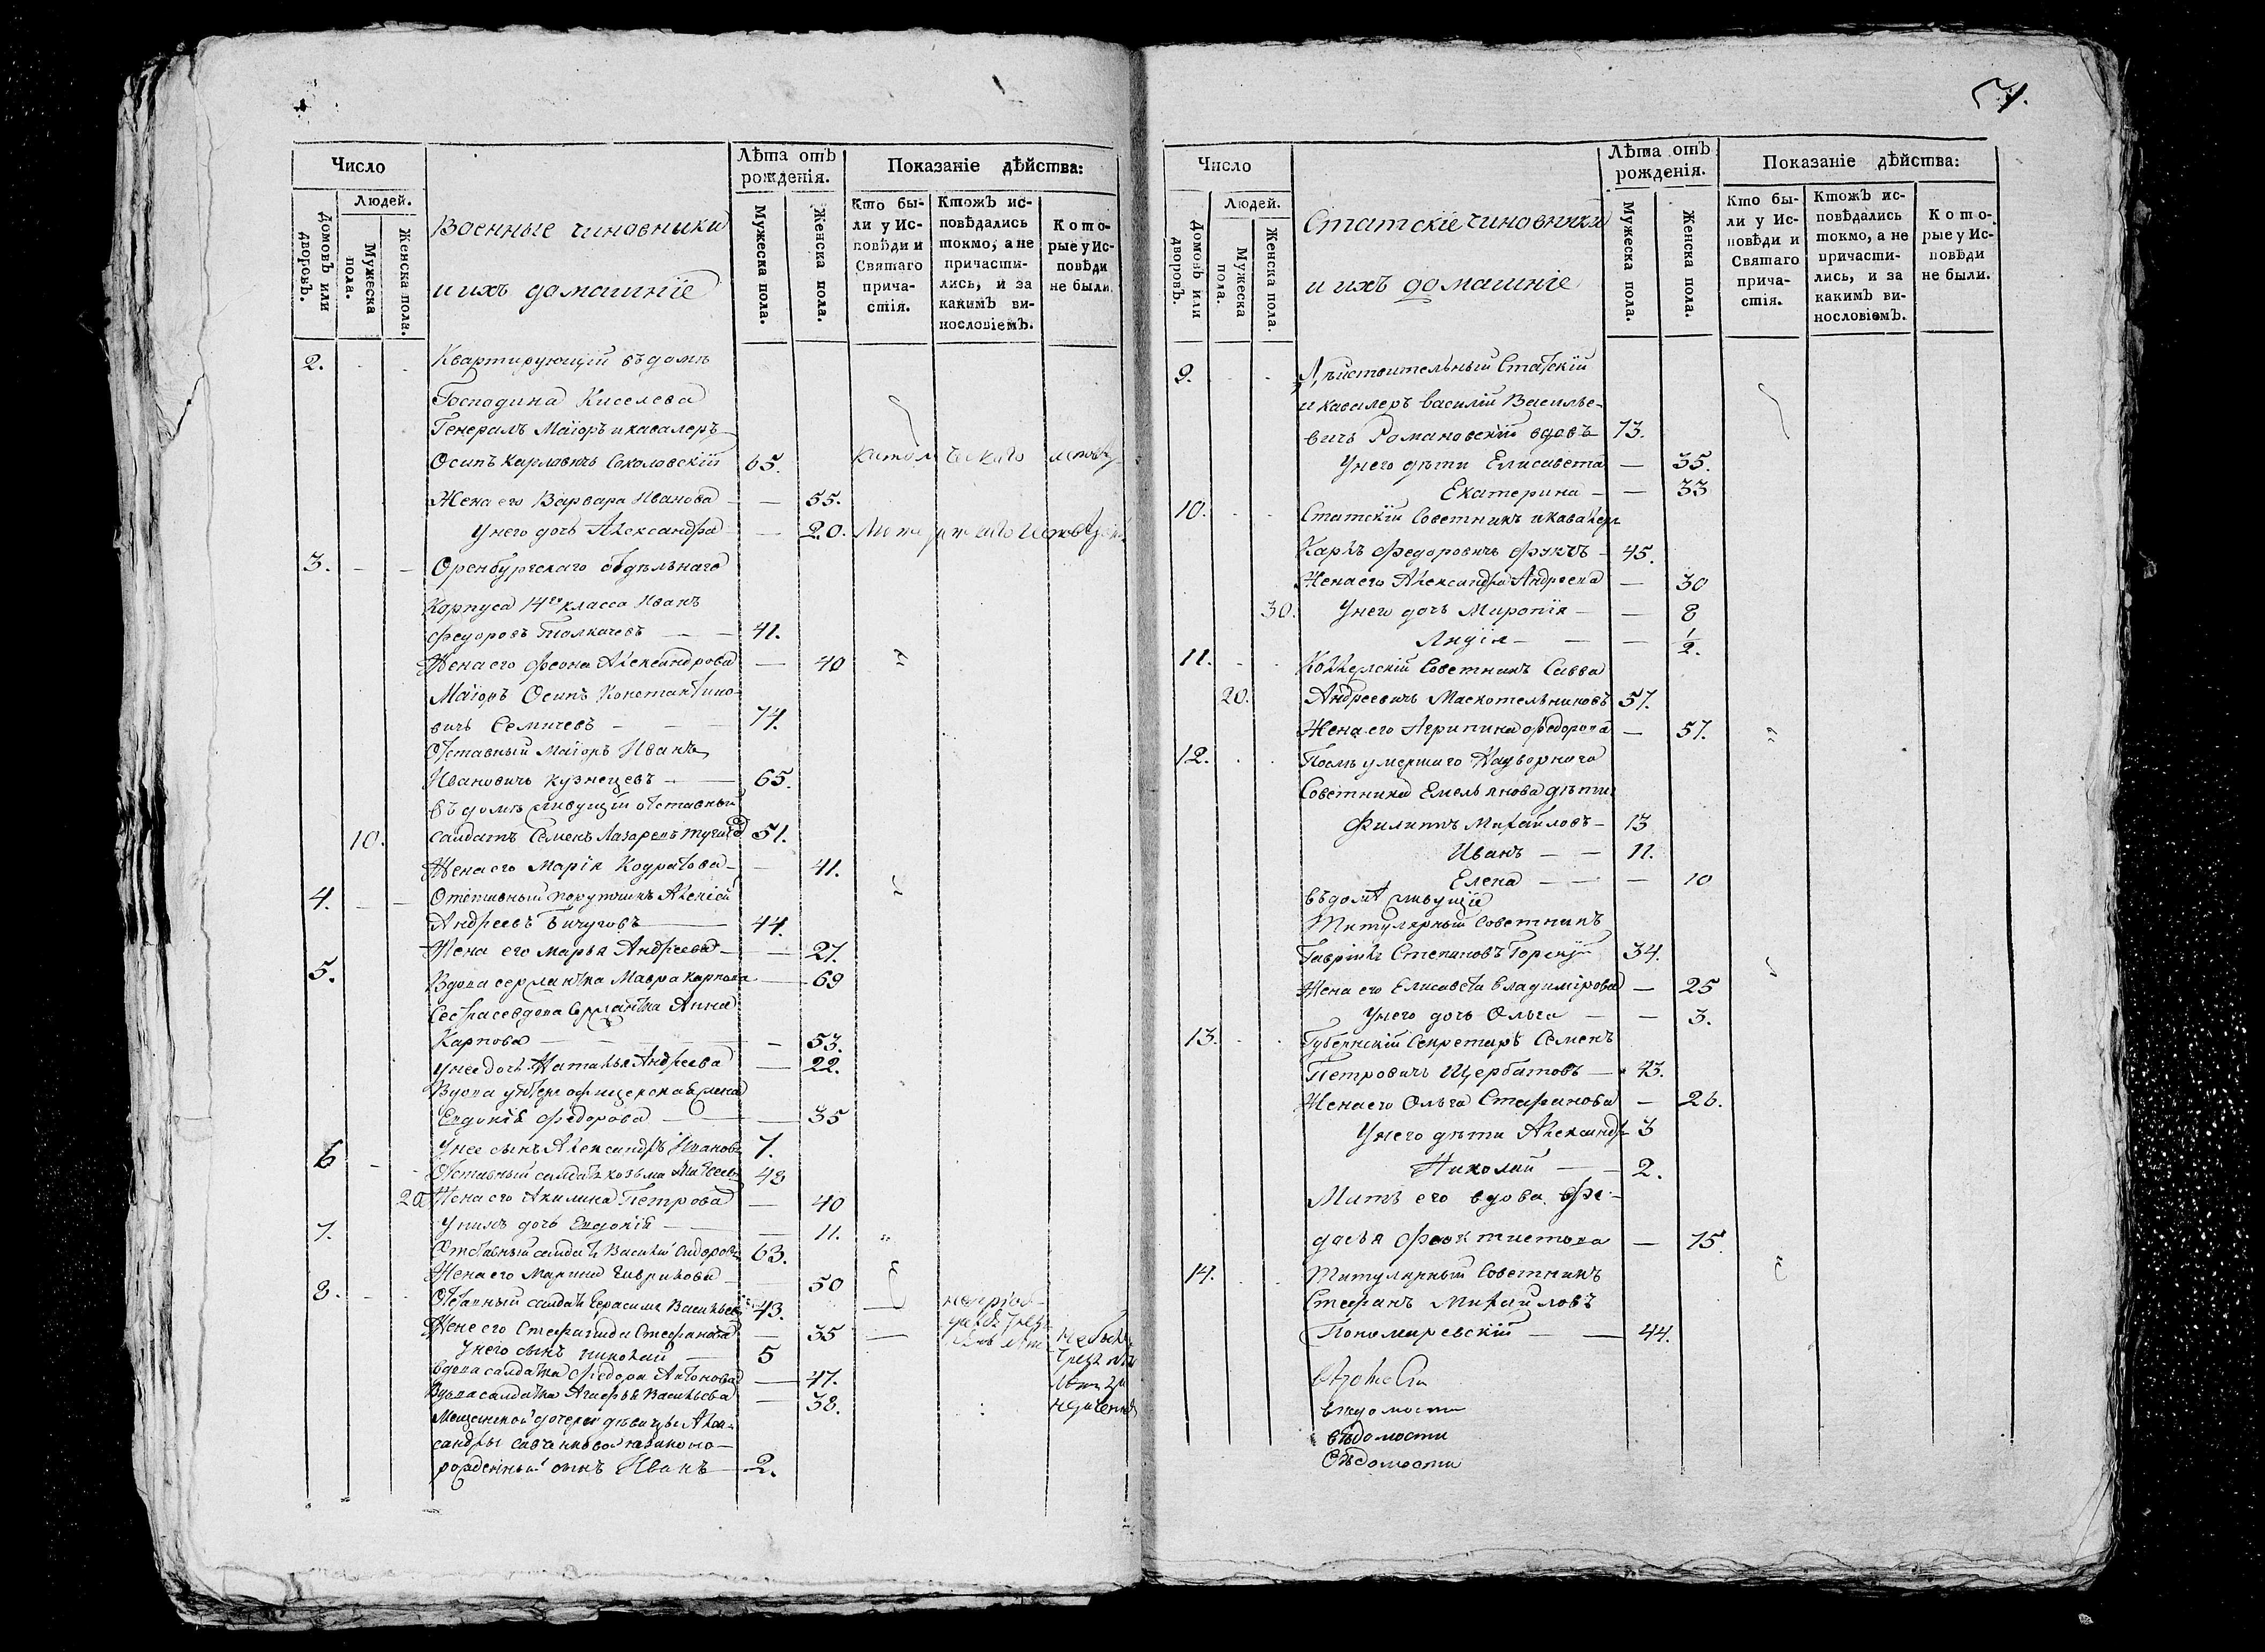 Число
Людей.
Домовъ или дворовъ.
Мужеска пола.
Женска пола.
Военные чиновники
и ихъ домашніе
Лѣта отъ рожденія.
Мужеска пола.
Женска пола.
Показаніе дѣйства:
Кто были у Исповѣди и Святаго причастія.
Ктожъ исповѣдались токмо, а не причастились, и за какимъ винословіемъ.
Которые у Исповѣди не были.
2. Квартирующій въ домѣ
Господина Киселева
Генералъ Маіоръ и кавалеръ
Осипъ Карловичъ Соколовскій 65.
Жена его Варвара Иванова — 55.
У него дочь Александра — 20.
3. Оренбургскаго отдѣльнаго
Корпуса 14го класса Иванъ
Федоровъ Толкачевъ — 41.
Жена его Александрова — 40
Маіоръ Осипъ Константино-
вичъ Семичевъ — 74.
Отставный Маіоръ Иванъ
Ивановичъ Кузнецевъ — 65.
въ домѣ живущій отставный
10. салдатъ Семенъ Лазаревъ 51.
Жена его Марія — 41.
4. Отставный порутчикъ Алексій
Андреевъ Бичуговъ — 44.
Жена его Марья Андреева — 27.
5. Вдова сержантка Мавра Карпова — 69
Сестра ее вдова сержантка Анна
Карпова — 53.
у нее дочь Наталья Андреева — 22.
Вдова унтеръ офицерская жена
Евдокія Федорова — 35
У нее сынъ Александръ Ивановъ 7.
6. Отставный салдатъ козьма 43
20 Жена его Акилина Петрова — 40
У нихъ дочь Евдокія — 11.
7. Отставный салдатъ Василій Сидоровъ 63.
Жена его Марина Гаврилова — 50
8. Отставный салдатъ Герасимъ Васильевъ 43.
Жена его Стефанида Стефанова — 35
У него сынъ Николай — 5
вдова салдатка Федора Антонова — 47.
Вдова салдатка Агафья Васильева — 38.
Мещанской дочери дѣвицы Алек-
сандры незаконо-
рожденный сынъ Иванъ — 2.
Число
Людей.
Домовъ или дворовъ.
Мужеска пола.
Женска пола.
Статскіе чиновники
и ихъ домашніе
Лѣта отъ рожденія.
Мужеска пола.
Женска пола.
Показаніе дѣйства:
Кто были у Исповѣди и Святаго причастія.
Ктожъ исповѣдались токмо, а не причастились, и за какимъ винословіемъ.
Которые у Исповѣди не были.
9. Дѣйствительный Статскій
и кавалеръ Василій Василье-
вичъ Романовскій вдовъ 73.
У него дѣти Елисавета — 35.
Екатерина — 33
10. Статскій Советникъ и кавалеръ
Карлъ Федоровичъ Фуксъ — 45.
Жена его Александра Андреева — 30
30. У него дочь Миропія — 8
Лидія — 1/2.
11. Коллежскій Советникъ Савва
20. Андреевичъ Москотельниковъ 57.
Жена его Агрипина Федорова — 57.
12. Послѣ умершаго Надворнаго
Советника Емельянова дѣти
Филиппъ Михайловъ — 13
Иванъ — 11.
Елена — 10
въ домѣ живущіе
Титулярный Советникъ
Гавріилъ Степановъ Горскій 34.
Жена его Елисавета Владимірова — 25
У него дочь Ольга — 3.
13. Губернскій Секретарь Семенъ
Петровичъ Щербатовъ — 43.
Жена его Ольга Стефанова — 26.
У него дѣти Александръ 3
Николай — 2.
Мать его вдова Фе-
досья Феоктистова — 75.
14. Титулярный Советникъ
Стефанъ Михайловъ
Пономаревскій — 44.
вѣдомости
вѣдомости
Вѣдомости